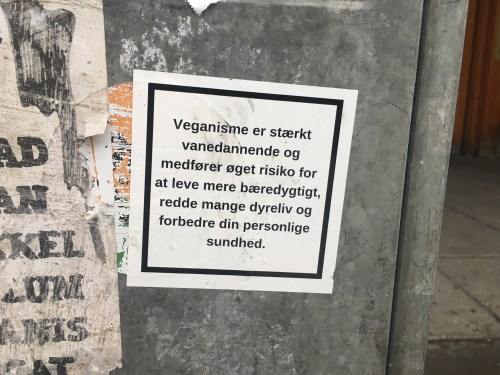 Veganisme er stærkt
vanedannende og
medfører øget risiko for
at leve mere bæredygtigt,
redde mange dyreliv og
forbedre din personlige
sundhed.
AD
AN
KKEL
LUM
ANIS
CAT